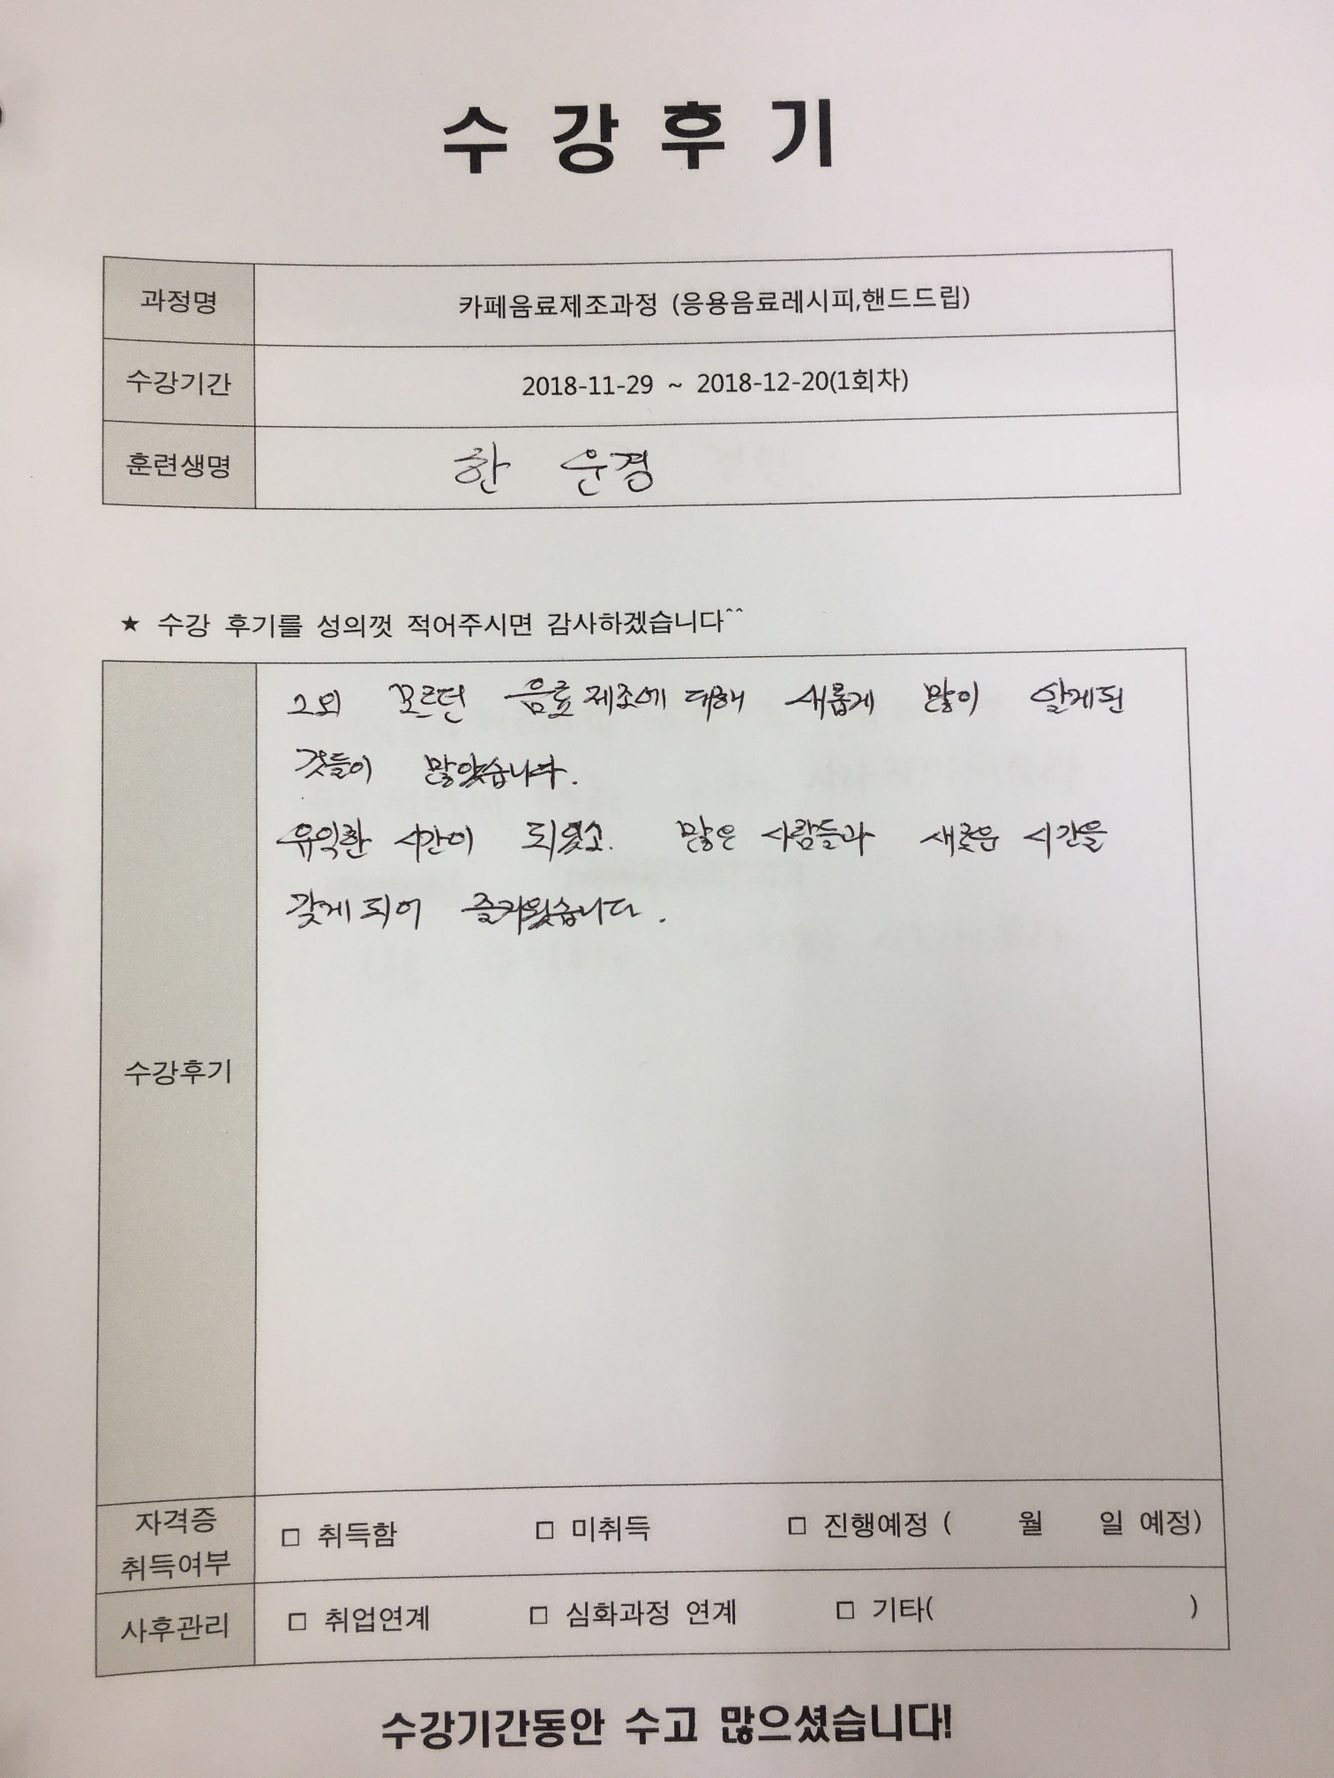 수강후기
과정명 카페음료제조과정 (응용음료레시피,핸드드립)
수강기간 2018-11-29 ~ 2018-12-20(1회차)
훈련생명 한 운경
★ 수강 후기를 성의껏 적어주시면 감사하겠습니다^^
그외 모르던 음료제조에 대해 새롭게 많이 알게된
것들이 많았습니다.
유익한 시간이 되었고. 많은 사람들과 새로운 시간을
갖게 되어 즐거웠습니다.
수강후기
자격증
취득여부 □ 취득함 □ 미취득 □ 진행예정 ( 월 일 예정)
사후관리 □ 취업연계 □ 심화과정 연계 □ 기타( )
수강기간동안 수고 많으셨습니다!